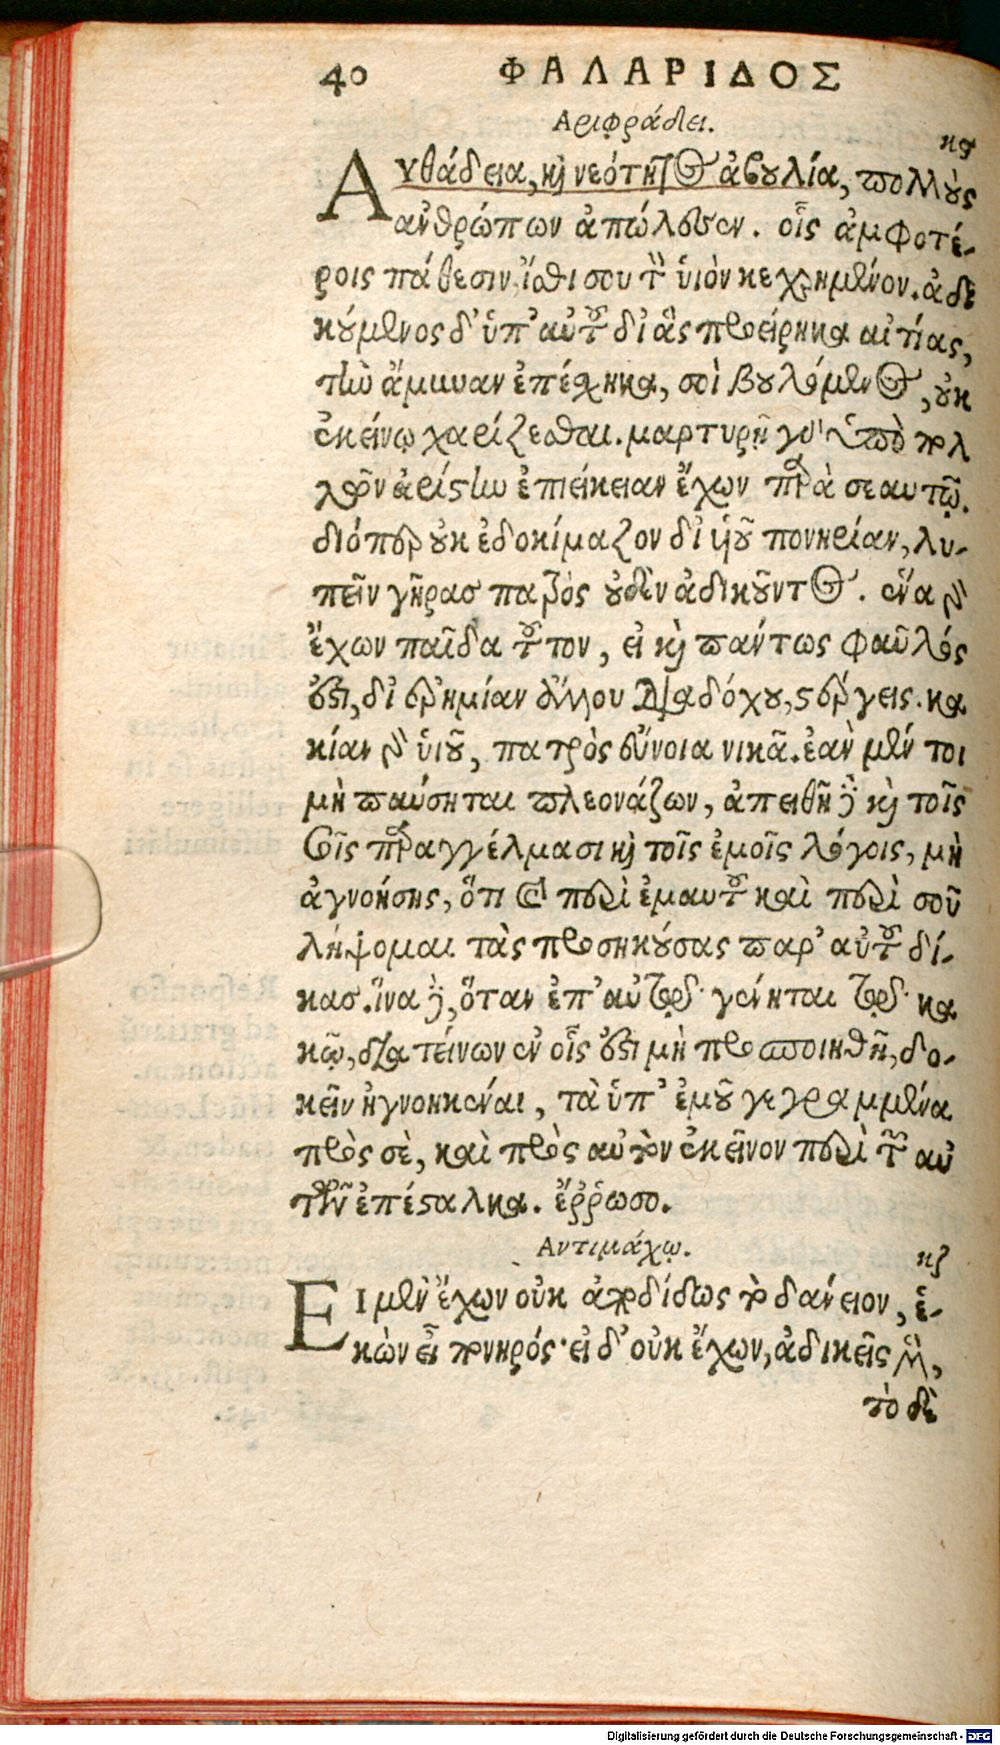 40 ΦΑΛΑΡΙΔΟΣ
Αριφράδει.
κϛ
Αὐθάδεια, καὶ νεότητος ἀβουλία, πολλοὺς
ἀνθρώπων ἀπώλεσεν. οἷς ἀμφοτέ-
ροις πάθεσιν ἴσθι σου τὸν ὑιὸν κεχρημένον. ἀδι
κούμενος δ' ὑπ' αὐτοῦ δι' ἃς προείρηκα αἰτίας,
τὴν ἄμυναν ἐπέσχηκα, σοὶ βουλόμενος, οὐκ
ἐκείνῳ χαρίζεσθαι. μαρτυρῇ γὰρ ὑπὸ πολ
λῶν ἀρίστην ἐπιείκειαν ἔχων παρὰ σεαυτῷ.
διόπερ οὐκ ἐδοκίμαζον δι' υἱοῦ πονηρίαν, λυ-
πεῖν γῆρας πατρὸς οὐδὲν ἀδικοῦντος. ἕνα δὲ
ἔχων παῖδα τοῦτον, εἰ καὶ πάντως φαῦλός
ἐστι, δι' ἐρημίαν ἄλλου διαδόχου, στέργεις. κα
κίαν δὲ ὑιοῦ, πατρὸς εὔνοια νικᾷ. ἐὰν μέν τοι
μὴ παύσηται πλεονάζων, ἀπειθῇ δὲ καὶ τοῖς
σοῖς παραγγέλμασι καὶ τοῖς ἐμοῖς λόγοις, μὴ
ἀγνοήσῃς, ὅτι καὶ περὶ ἐμαυτοῦ καὶ περὶ σοῦ
λήψομαι τὰς προσηκούσας παρ' αὐτοῦ δί-
κας. ἵνα δὲ, ὅταν ἐπ' αὐτῷ γένηται τῷ κα
κῷ, διατείνων ἐν οἷς ἐστι μὴ προσποιηθῇ, δο-
κεῖν ἠγνοηκέναι, τὰ ὑπ' ἐμοῦ γεγραμμένα
πρὸς σὲ, καὶ πρὸς αὐτὸν ἐκεῖνον περὶ τῶν αὐ
τῶν ἐπέσταλκα. ἔῤῥωσο.
Αντιμάχῳ.
κζ
Εἰ μὲν ἔχων οὐκ ἀποδίδως τὸ δάνειον, ἑ-
κὼν εἶ πονηρός· εἰ δ' οὐκ ἔχων, ἀδικεῖς μὲν,
τὸ δὲ